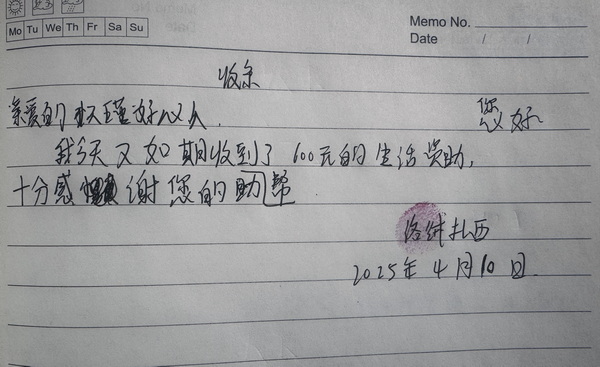 Memo No.
Mo Tu We Th Fr Sa Su
Date / /
收条
亲爱的权瑾好心人, 您好
我今天又如期收到了600元的生活资助,
十分感谢您的助帮
洛绒扎西
2025年4月10日.